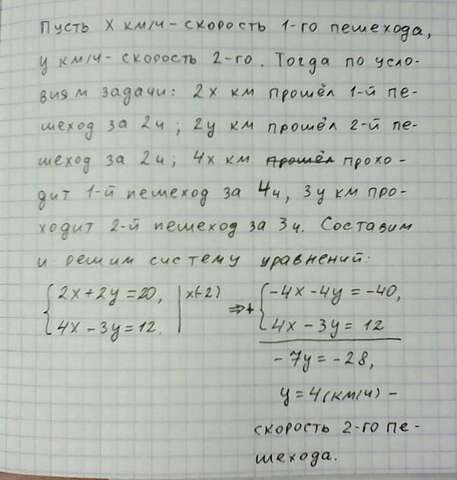 Пусть х км/ч - скорость 1-го пешехода,
у км/ч - скорость 2-го. Тогда по усло-
виям задачи: 2х км прошёл 1-й пе-
шеход за 2ч; 2у км прошёл 2-й пе-
шеход за 2ч; 4х км прошёл прохо-
дит 1-й пешеход за 4ч, 3у км про-
ходит 2-й пешеход за 3ч. Составим
и решим систему уравнений:
{2x+2y=20, |x(-2) ⇒ + {-4x-4y=-40,
{4x-3y=12. | {4x-3y=12
-7y=-28,
y=4(км/ч) -
скорость 2-го пе-
шехода.